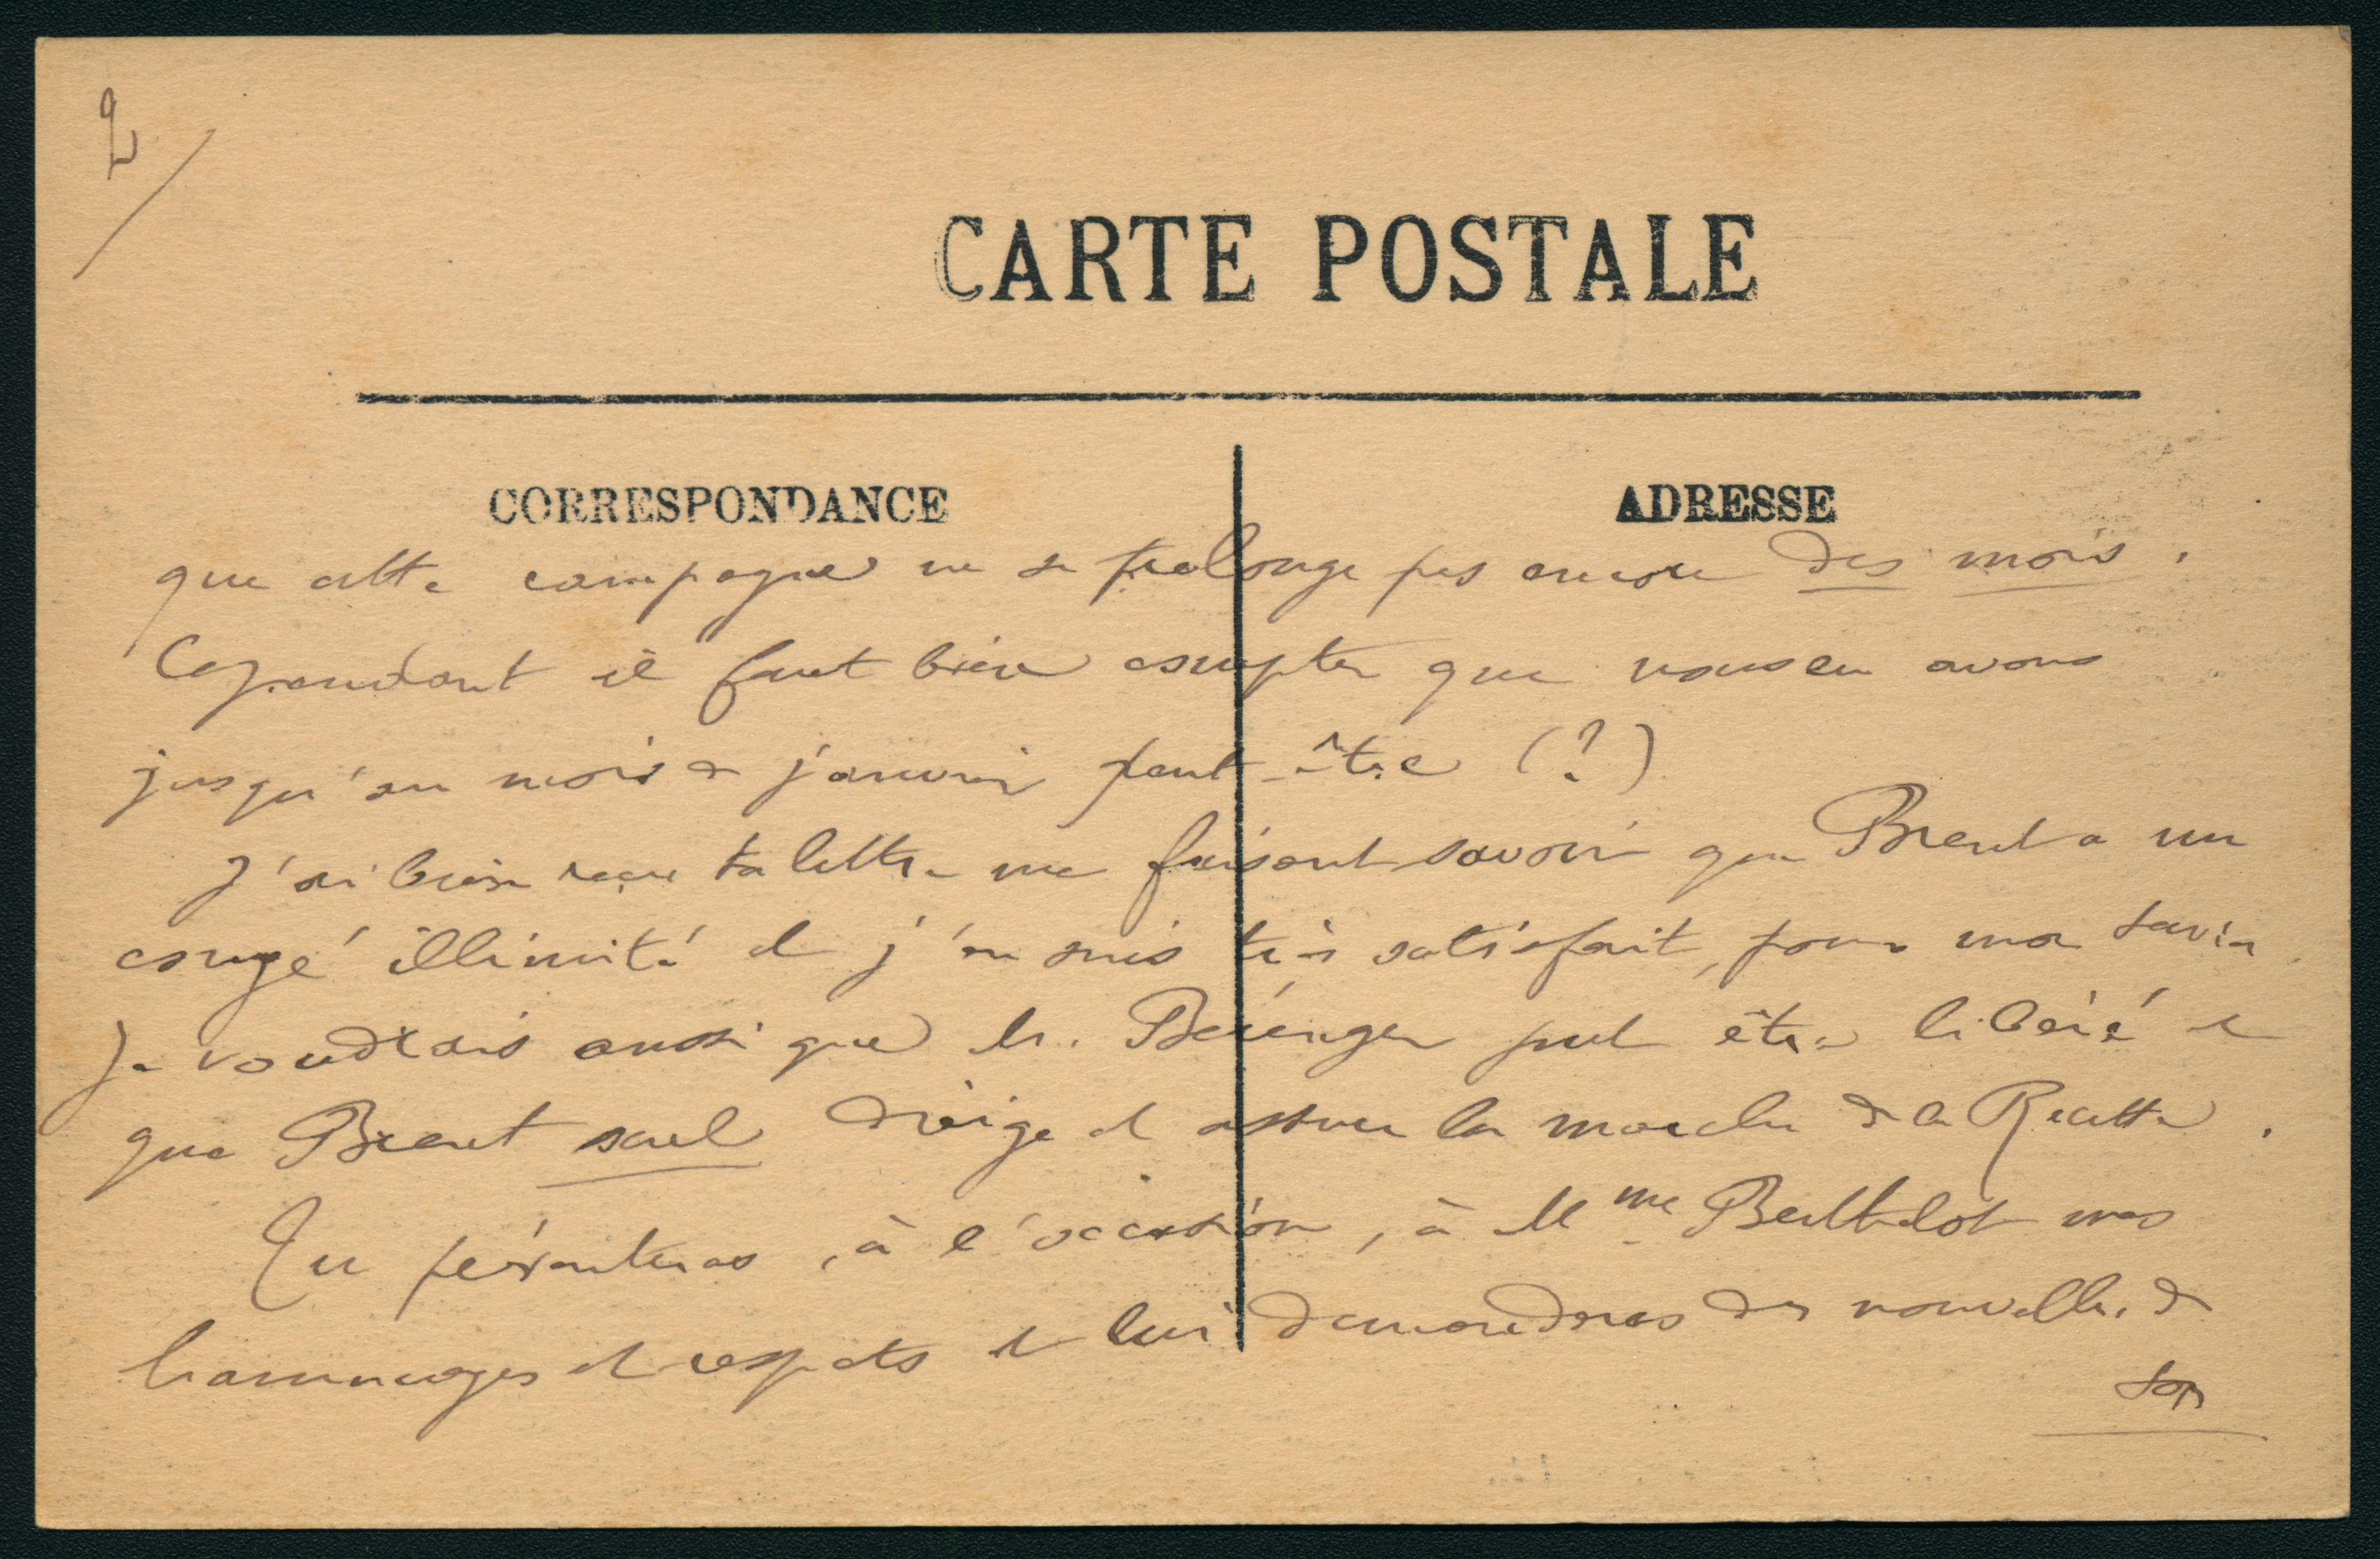 2/
CARTE POSTALE
CORRESPONDANCE
ADRESSE
que cette campagne ne se prolonge pas encore des mois.
Cependant il faut bien compter que nous en avons
jusqu'au mois de janvier peut-être (?)
J'ai bien reçu ta lettre me faisant savoir que Brent a un
congé illimité et j'en suis très satisfait, pour ma
Je voudrais aussi que Mr. Bérenger put être libéré et
que Brent seul dirige et assure la marche de la Recette.
Tu présenteras, à l'occasion, à Mme Berthelot mes
hommages et respects et lui demanderas des nouvelles de
son